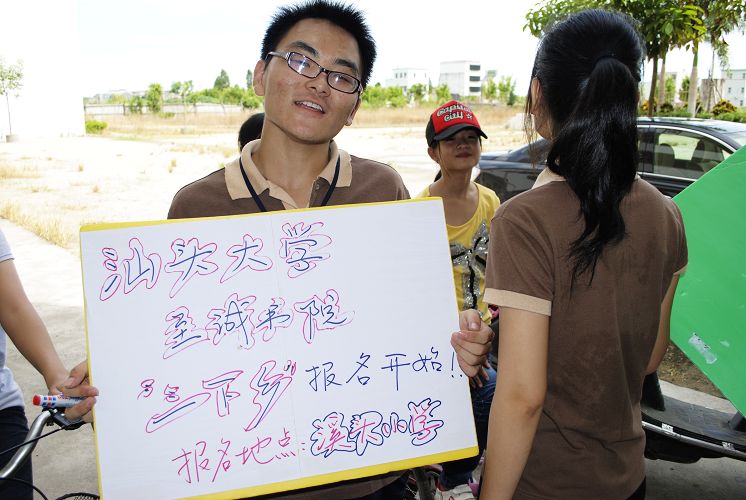 汕头大学
至诚书院
“三下乡”报名开始!!
报名地点:溪头小学
Captain
Guy